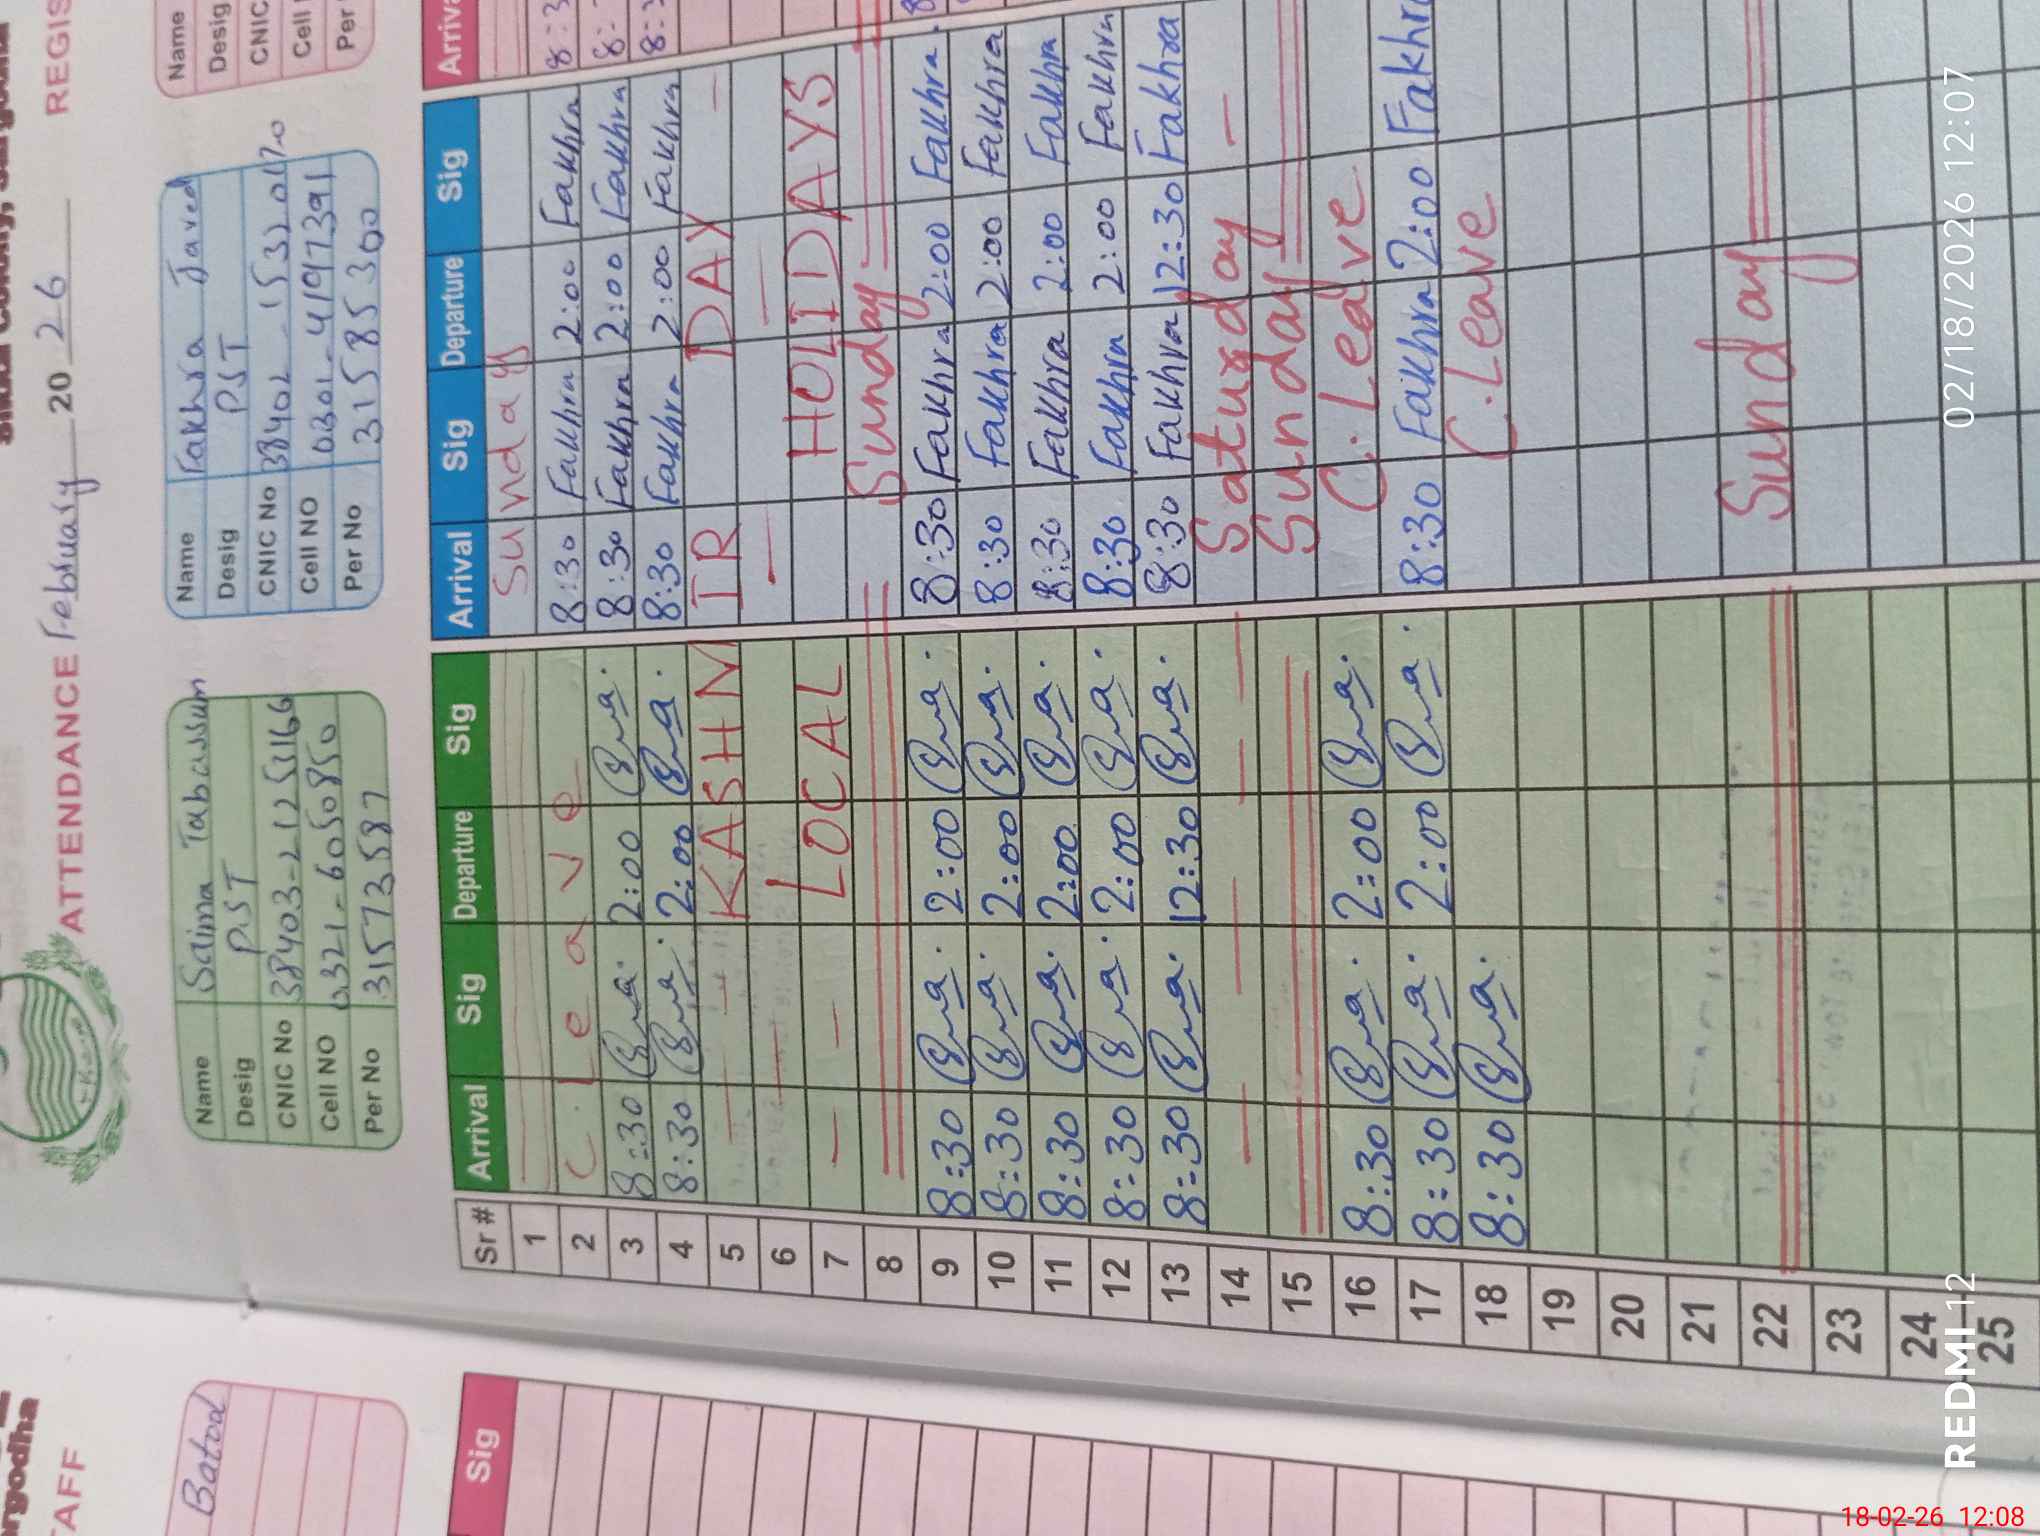 ATTENDANCE February 20 26 REGIS
Name Salima Tabassum
Desig PST
CNIC No 38403-2125166
Cell NO 0321-6050850
Per No 31573587
Name Fakhra Javed
Desig PST
Cell NO 0301-4197391
Per No 31585300
Name
Desig
CNIC
Cell
Per
Sr # Arrival Sig Departure Sig Arrival Sig Departure Sig Arriva
1 Sunday
2 C. Leave 8:30 Fakhra 2:00 Fakhra
3 8:30 2:00 8:30 Fakhra 2:00 Fakhra
4 8:30 2:00 8:30 Fakhra 2:00 Fakhra
5 KASHMIR DAY
6
7 LOCAL HOLIDAYS
8 Sunday
9 8:30 2:00 8:30 Fakhra 2:00 Fakhra
10 8:30 2:00 8:30 Fakhra 2:00 Fakhra
11 8:30 2:00 8:30 Fakhra 2:00 Fakhra
12 8:30 2:00 8:30 Fakhra 2:00 Fakhra
13 8:30 12:30 8:30 Fakhra 12:30 Fakhra
14 Saturday
15 Sunday
16 8:30 2:00 C. Leave
17 8:30 2:00 8:30 Fakhra 2:00 Fakhra
18 8:30 C. Leave
19
20
21
22 Sunday
23
24
25
TAFF
Batool
Sig
REDMI 12
02/18/2026 12:07
18-02-26 12:08